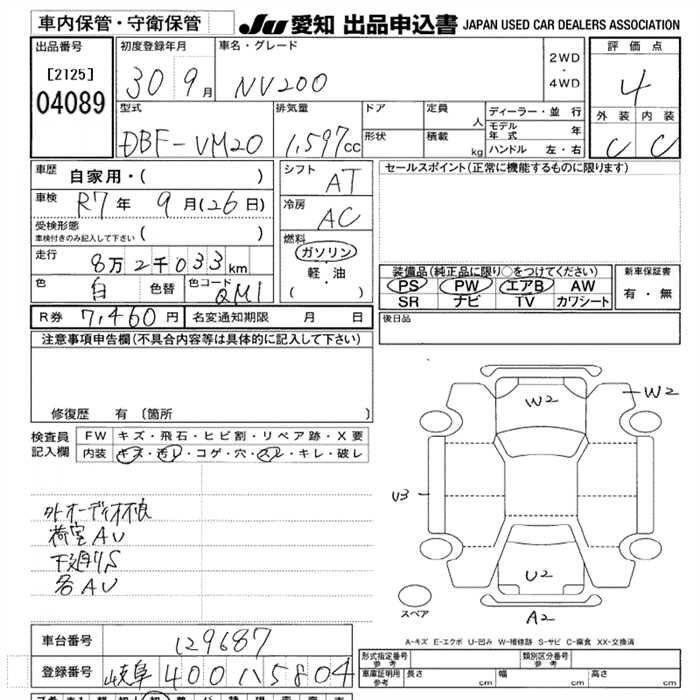 車内保管・守衛保管 JU 愛知 出品申込書 JAPAN USED CAR DEALERS ASSOCIATION
出品番号
[2125]
04089
初度登録年月
30 9月
車名・グレード
NV200
2WD
・
4WD
評価点
4
外装 内装
C C
型式
DBF-VM20
排気量
1,597cc
ドア
形状
定員
人
積載
kg
ディーラー・並行
モデル年式 年
ハンドル 左・右
車歴 自家用・( )
車検 R7年 9月(26日)
受検形態
車検付きのみ記入して下さい ( )
走行 8万2千033km
色 白 色替 色コード QM1
シフト AT
冷房 AC
燃料
ガソリン
軽・油
( ・ )
セールスポイント(正常に機能するものに限ります)
装備品(純正品に限り○をつけてください)
PS PW エアB AW
SR ナビ TV カワシート
新車保証書
有・無
R券 7,460円 名変通知期限 月 日
後日品
注意事項申告欄(不具合内容等は具体的に記入して下さい)
修復歴 有 〔箇所 〕
検査員記入欄
FW キズ・飛石・ヒビ割・リペア跡・X要
内装 キズ・汚レ・コゲ・穴・スレ・キレ・破レ
外オーディオ不良
荷室AU
下廻りS
各AU
W2
W2
U3
U2
A2
スペア
A-キズ E-エクボ U-凹み W-補修跡 S-サビ C-腐食 XX-交換済
車台番号 129687
登録番号 岐阜 400 ハ 5804
形式指定番号
参考
類別区分番号
参考
車庫証明用
参考
長さ cm 幅 cm 高さ cm